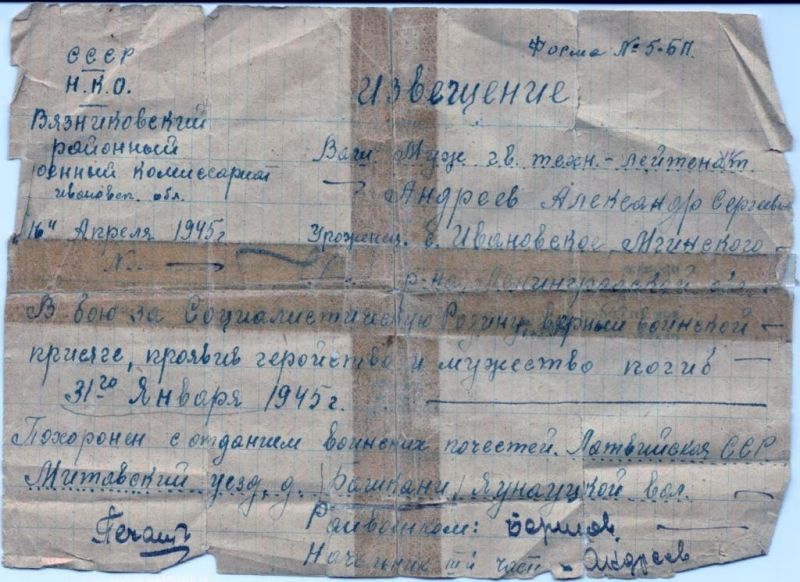 СССР
Н.К.О.
Вязниковский
районный
оенный комиссариат
Ивановск. обл.
"16" Апреля 1945 г
№
Форма № 5-БП.
Извещение
Ваш Муж гв. техн.-лейтенант
Андреев Александр Сергеевич
Уроженец с. Ивановское, Мгинского
р-на, Ленинградской обл.
В бою за Социалистическую Родину, верный воинской
присяге, проявив геройство и мужество погиб
31го Января 1945 г.
Похоронен с отданием воинских почестей. Латвийская ССР
Митавский уезд, д. /Рашкани/ Яунауцкой вол.
Печать
Райвоенком:
Начальник III части - Андреев